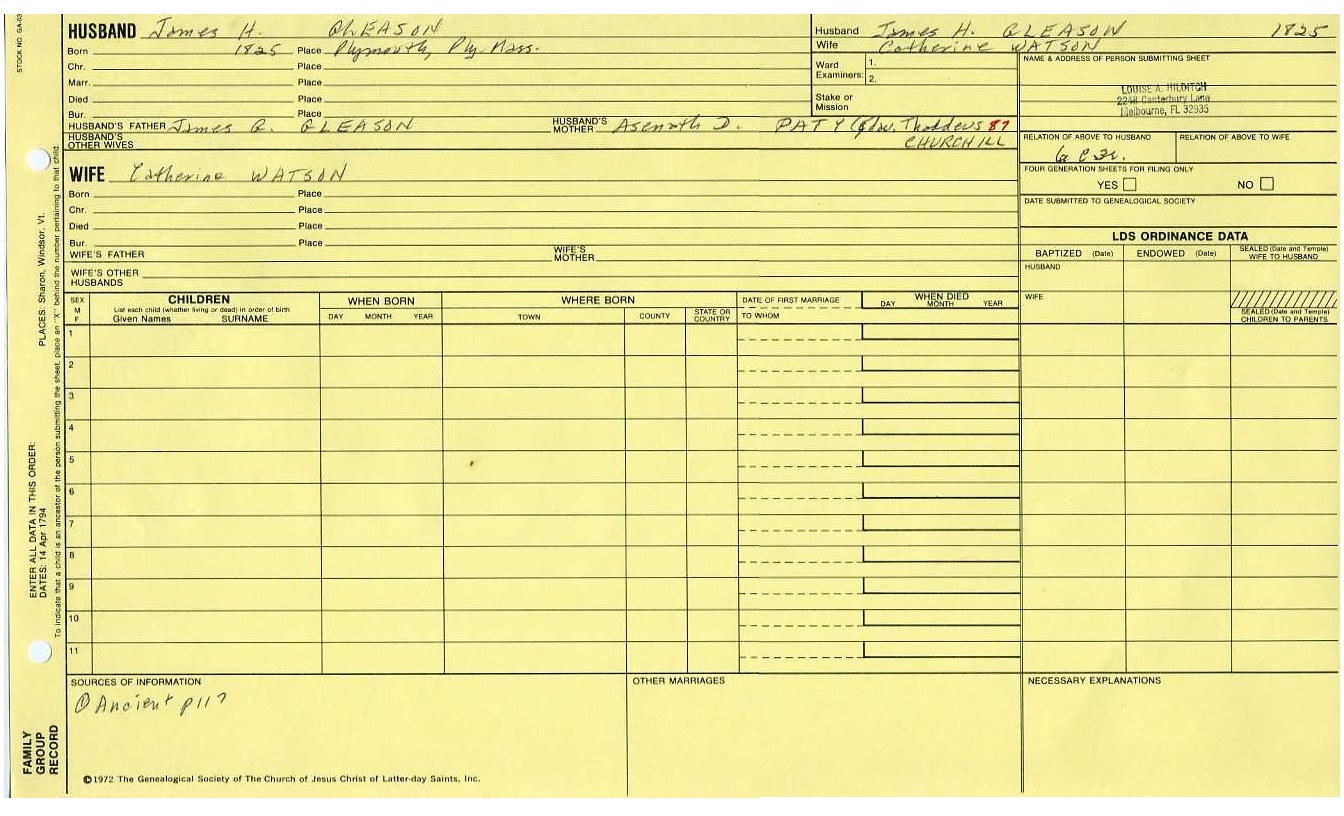 STOCK NO. GA-03
HUSBAND James H. GLEASON
Born 1825 Place Plymouth, Ply Mass.
Chr. Place
Marr. Place
Died Place
Bur. Place
HUSBAND'S FATHER James G. GLEASON HUSBAND'S MOTHER Asenath D. PATY Thaddeus 87
HUSBAND'S OTHER WIVES CHURCHILL
Husband James H. GLEASON 1825
Wife Catherine WATSON
Ward Examiners: 1.
2.
Stake or Mission
NAME & ADDRESS OF PERSON SUBMITTING SHEET
LOUISE A. HILDITCH
2248 Canterbury Lane
Melbourne, FL 32935
RELATION OF ABOVE TO HUSBAND RELATION OF ABOVE TO WIFE
FOUR GENERATION SHEETS FOR FILING ONLY
YES NO
DATE SUBMITTED TO GENEALOGICAL SOCIETY
WIFE Catherine WATSON
Born Place
Chr. Place
Died Place
Bur. Place
WIFE'S FATHER WIFE'S MOTHER
WIFE'S OTHER HUSBANDS
LDS ORDINANCE DATA
BAPTIZED (Date) ENDOWED (Date) SEALED (Date and Temple) WIFE TO HUSBAND
HUSBAND
WIFE
SEALED (Date and Temple) CHILDREN TO PARENTS
SEX M F
CHILDREN
List each child (whether living or dead) in order of birth
Given Names SURNAME
WHEN BORN
DAY MONTH YEAR
WHERE BORN
TOWN COUNTY STATE OR COUNTRY
DATE OF FIRST MARRIAGE
TO WHOM
WHEN DIED
DAY MONTH YEAR
1
2
3
4
5
6
7
8
9
10
11
SOURCES OF INFORMATION
① Ancient p117
OTHER MARRIAGES
NECESSARY EXPLANATIONS
©1972 The Genealogical Society of The Church of Jesus Christ of Latter-day Saints, Inc.
FAMILY GROUP RECORD
ENTER ALL DATA IN THIS ORDER:
DATES: 14 Apr 1794 PLACES: Sharon, Windsor, Vt.
To indicate that a child is an ancestor of the person submitting the sheet, place an "X" behind the number pertaining to that child.